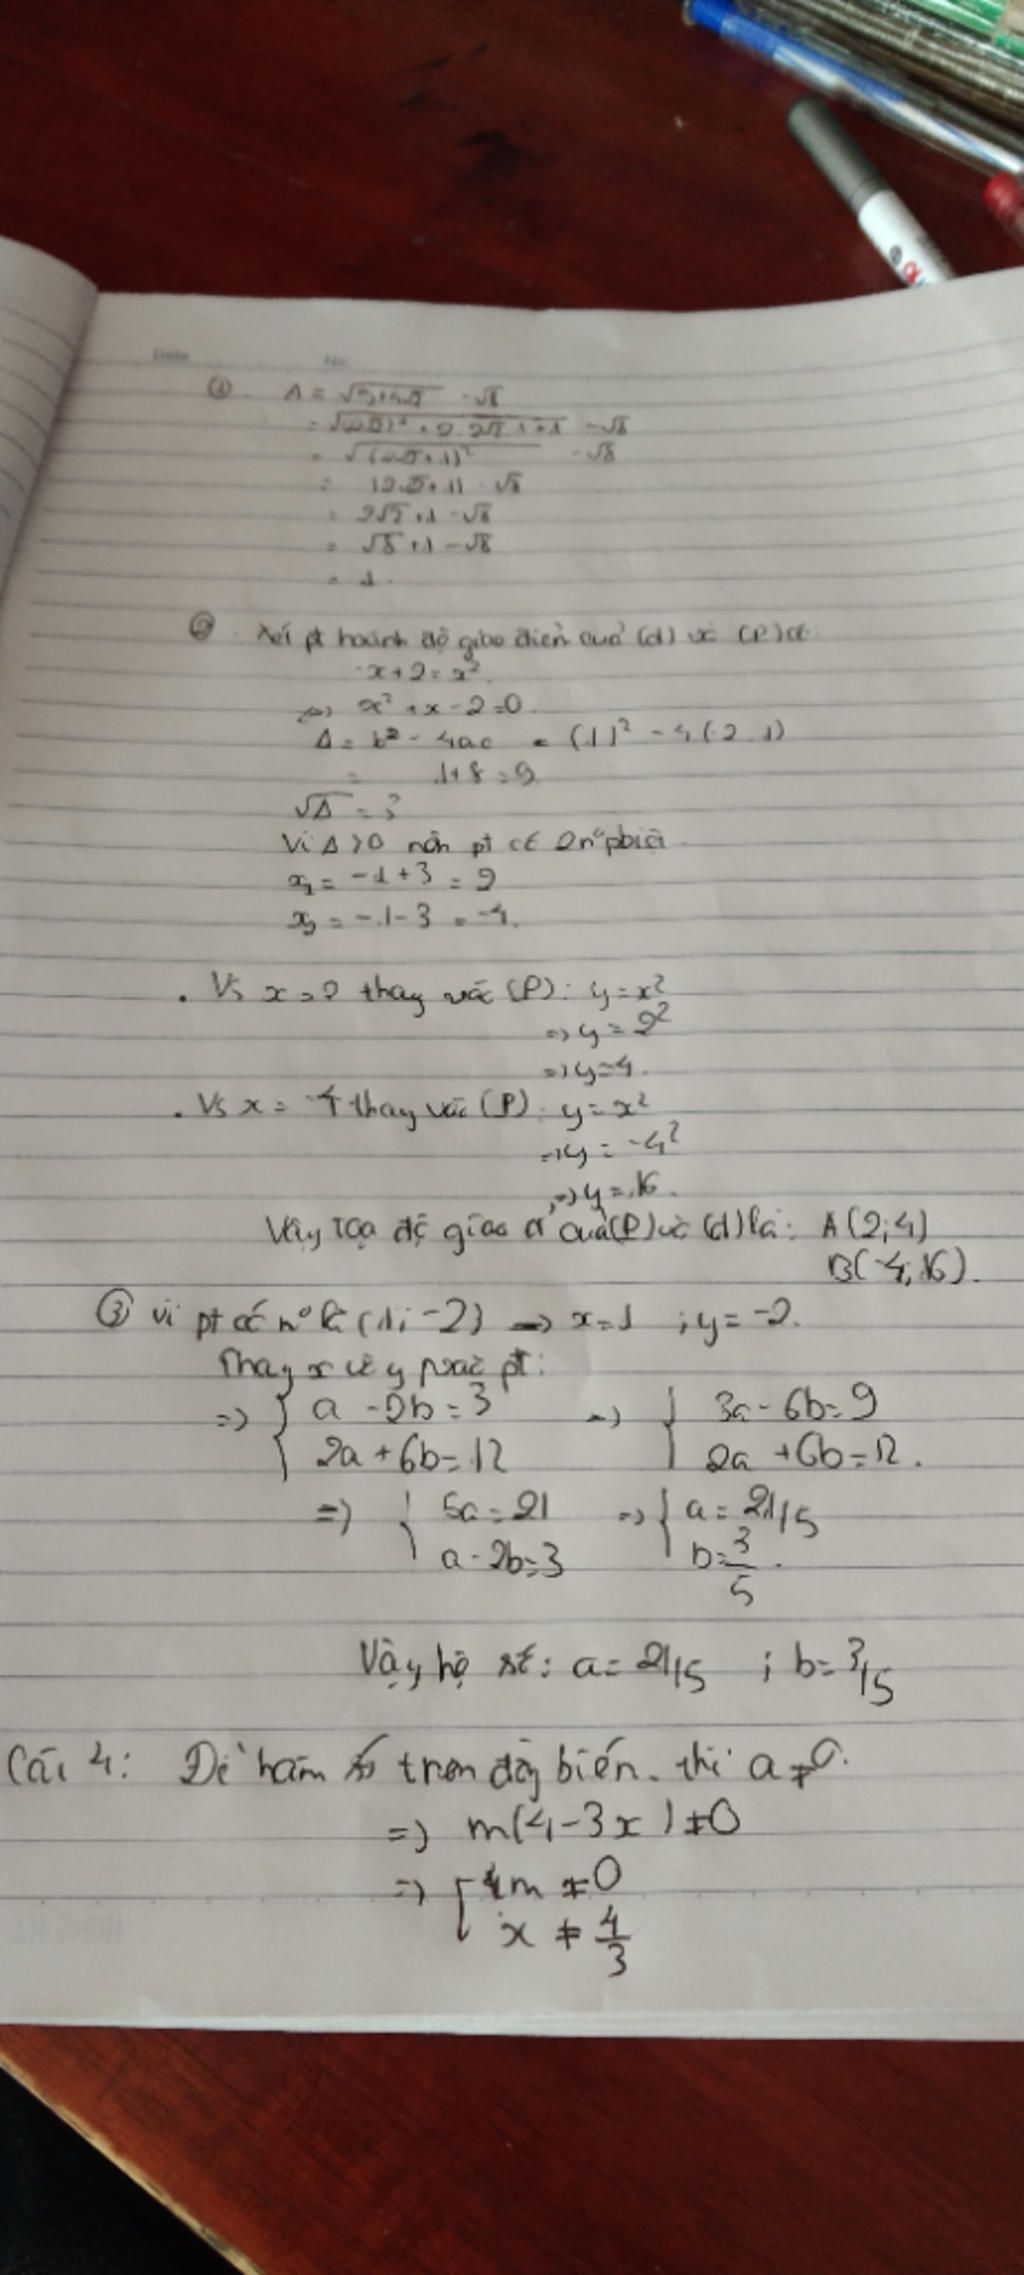 Date No
① A = √9+4√2 - √8
= √(2√2)² + 2.2√2.1+1 - √8
= √(2√2+1)² - √8
= |2√2+1| - √8
= 2√2 + 1 - √8
= √8 + 1 - √8
= 1.
② Xét pt hoành độ giao điểm của (d) và (P) có:
-x+2 = x²
<=> x² + x - 2 = 0.
Δ = b² - 4ac = (1)² - 4(-2.1)
= 1+8 = 9
√Δ = 3
Vì Δ > 0 nên pt có 2n⁰ pbiệt
x₁ = -1+3 = 2
x₂ = -1-3 = -4.
. Vs x=2 thay vào (P): y = x²
=> y = 2²
=> y=4.
. Vs x = -4 thay vào (P): y = x²
=> y = -4²
=> y = 16.
Vậy tọa độ giao đ' của (P) và (d) là: A(2;4)
B(-4;16).
③ vì pt có n⁰ là (1;-2) => x=1 ; y = -2.
Thay x và y vào pt:
=> { a - 2b = 3 => { 3a - 6b = 9
2a + 6b = 12 2a + 6b = 12.
=> { 5a = 21 => { a = 21/5
a - 2b = 3 b = 3/5.
Vậy hệ số: a = 21/5 ; b = 3/5
Câu 4: Để hàm số trên đồng biến thì a ≠ 0.
=> m(4-3x) ≠ 0
=> [ m ≠ 0
x ≠ 4/3